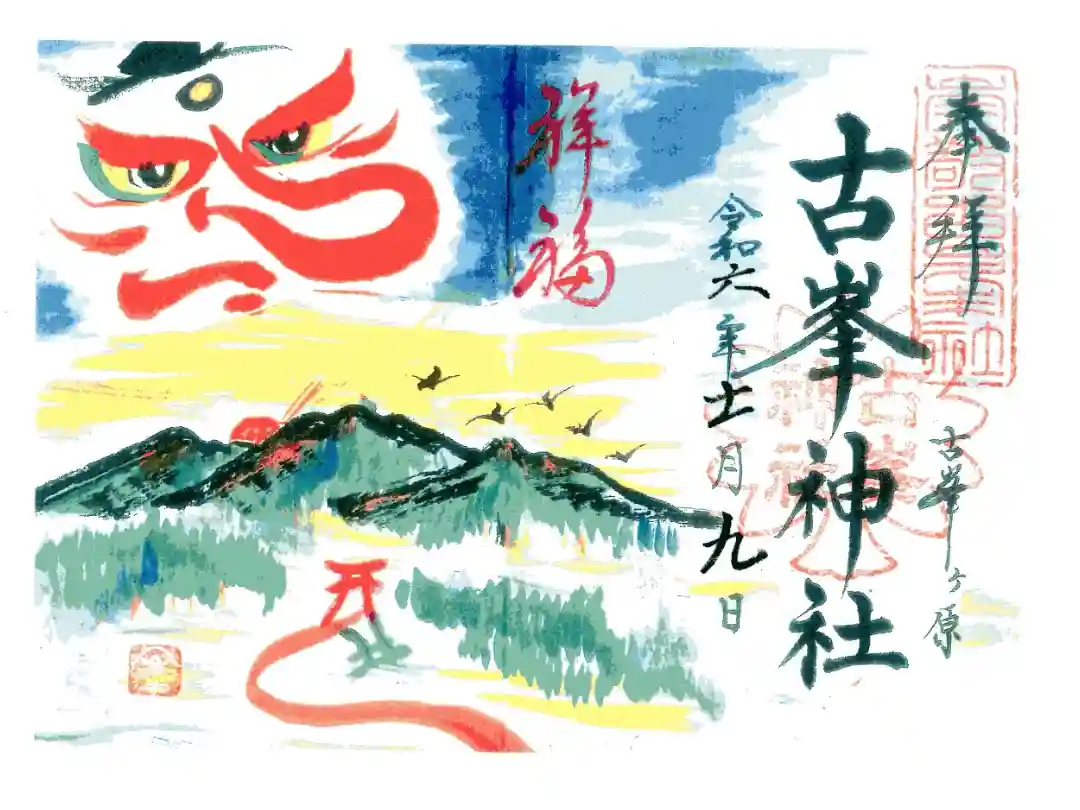 奉拝
古峯ヶ原
古峯神社
古峯神社
令和六年十一月九日
祥福